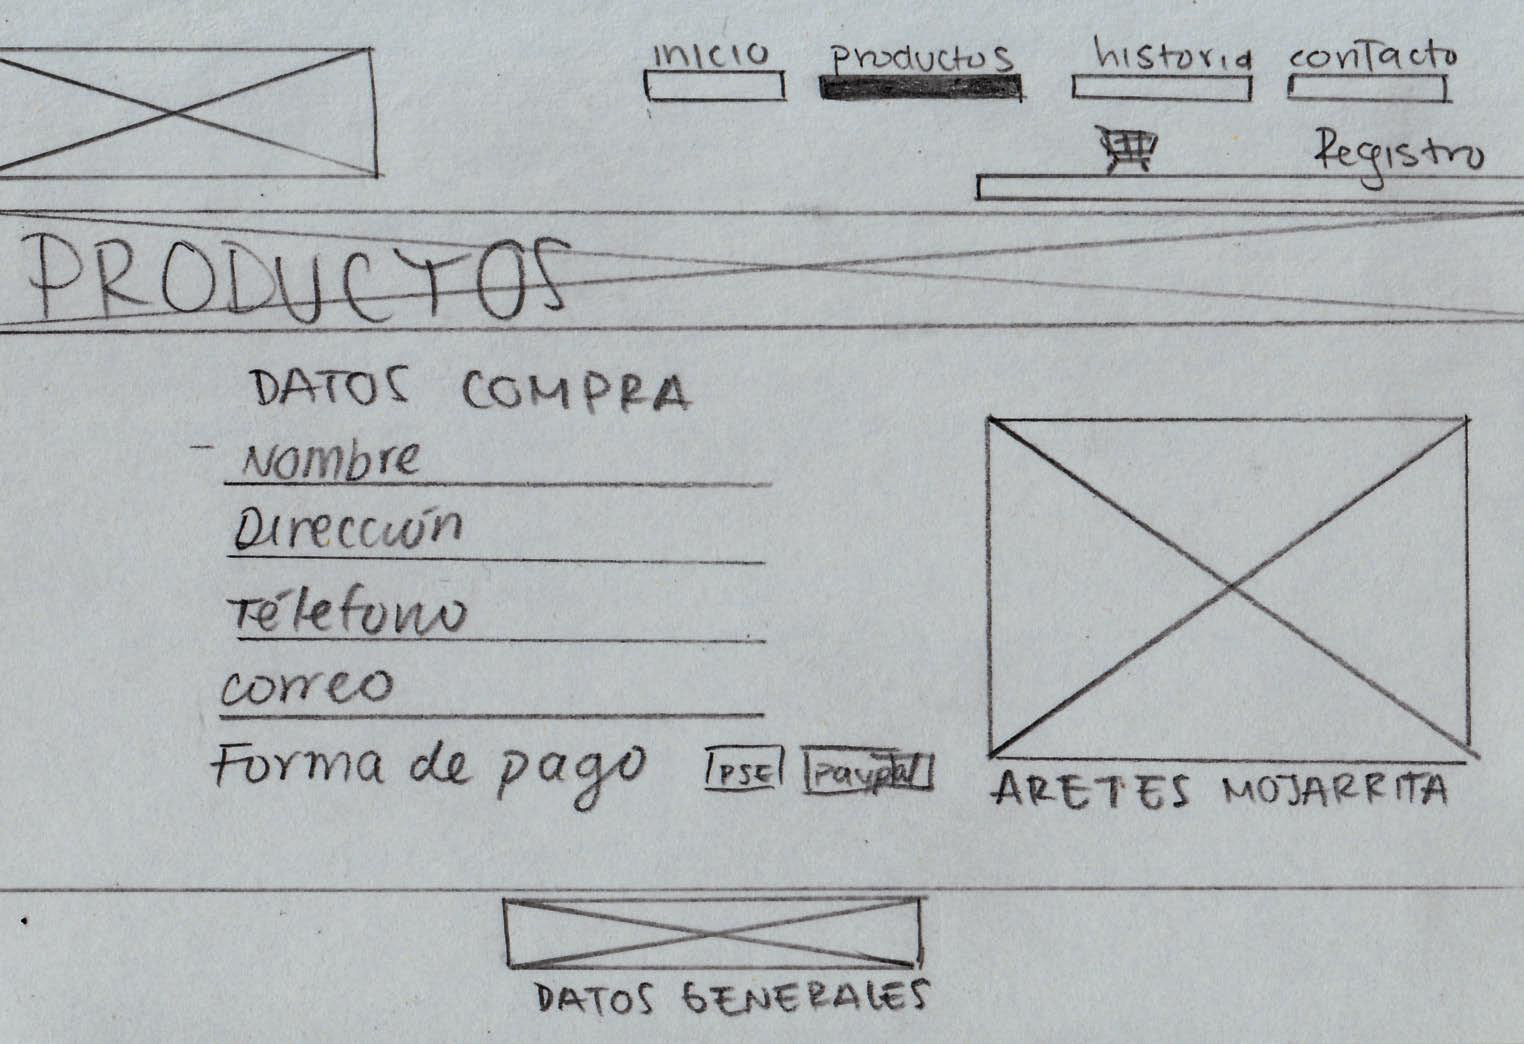 inicio productos historia contacto
Registro
PRODUCTOS
DATOS COMPRA
- Nombre
Dirección
Teléfono
correo
Forma de pago PSE Paypal
ARETES MOJARRITA
DATOS GENERALES